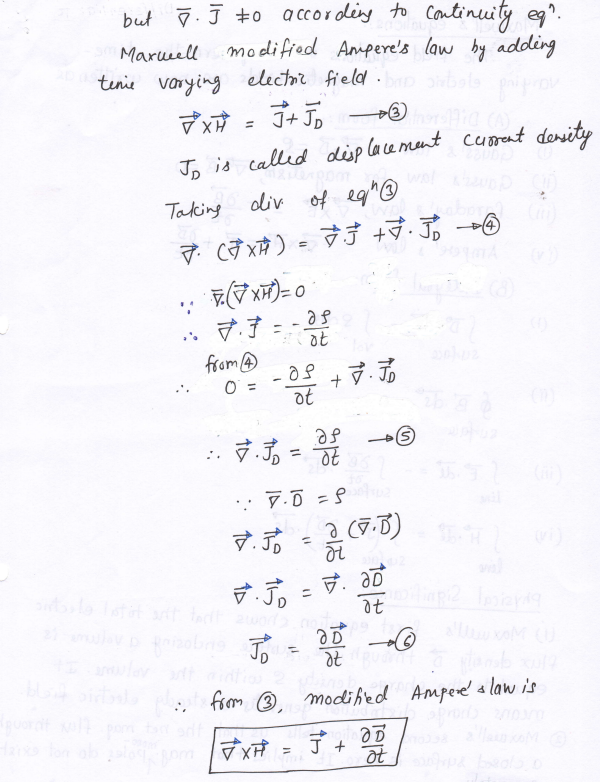 but ∇̅ . J̅ ≠ 0 according to Continuity eqⁿ.
Maxwell modified Ampere's law by adding
time varying electric field.
∇⃗ × H⃗ = J⃗ + J⃗_D → ③
J_D is called displacement current density
Taking div of eqⁿ ③
∇⃗ . (∇⃗ × H⃗) = ∇⃗ . J⃗ + ∇⃗ . J⃗_D → ④
∵ ∇̅ . (∇⃗ × H⃗) = 0
∴ ∇⃗ . J⃗ = - ∂ρ/∂t
from ④
∴ 0 = - ∂ρ/∂t + ∇⃗ . J⃗_D
∴ ∇⃗ . J⃗_D = ∂ρ/∂t → ⑤
∵ ∇̅ . D̅ = ρ
∇⃗ . J⃗_D = ∂/∂t (∇⃗ . D⃗)
∇⃗ . J⃗_D = ∇⃗ . ∂D⃗/∂t
J⃗_D = ∂D⃗/∂t → ⑥
∴ from ③, modified Ampere's law is
∇⃗ × H⃗ = J⃗ + ∂D⃗/∂t